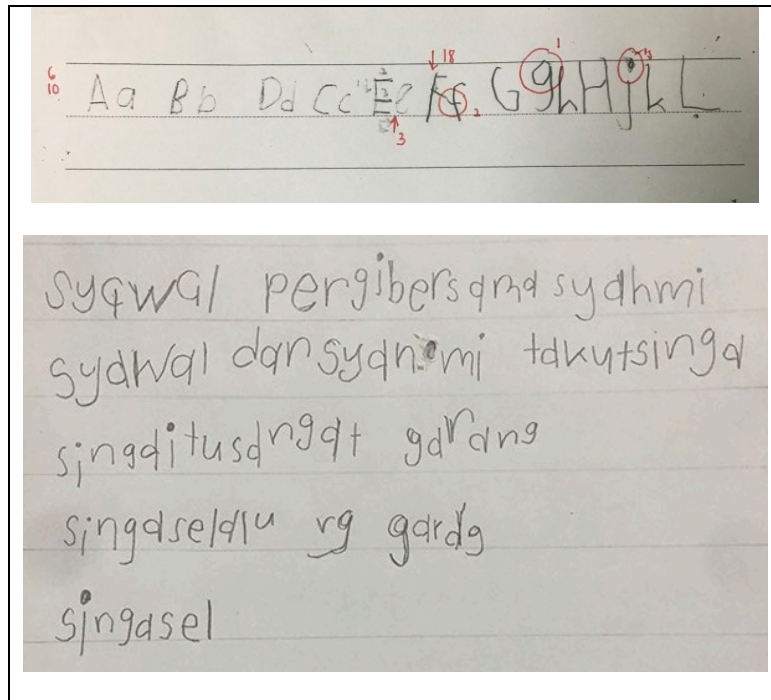 6
10
1
18
3
Aa Bb Dd Cc Ee Ff Gg hH j k L
2
3
syawal pergibersama syahmi
syawal dan syahmi takutsinga
singaitusangat garang
singaselalu garag
singasel